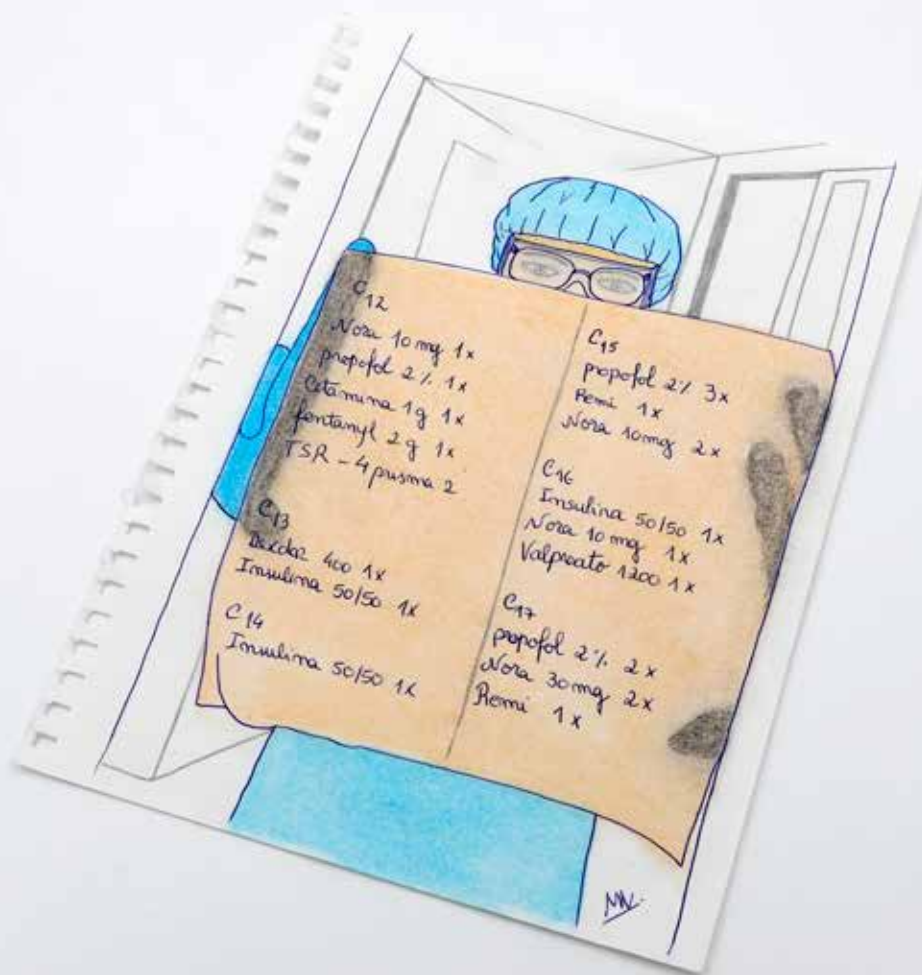 C12
Nora 10 mg 1x
propofol 2% 1x
Cetamina 1g 1x
fentanyl 2g 1x
TSR - 4 prisma 2
C13
Dexdor 400 1x
Insulina 50/50 1x
C14
Insulina 50/50 1x
C15
propofol 2% 3x
Remi 1x
Nora 10mg 2x
C16
Insulina 50/50 1x
Nora 10 mg 1x
Valproato 1200 1x
C17
propofol 2% 2x
Nora 30mg 2x
Remi 1x